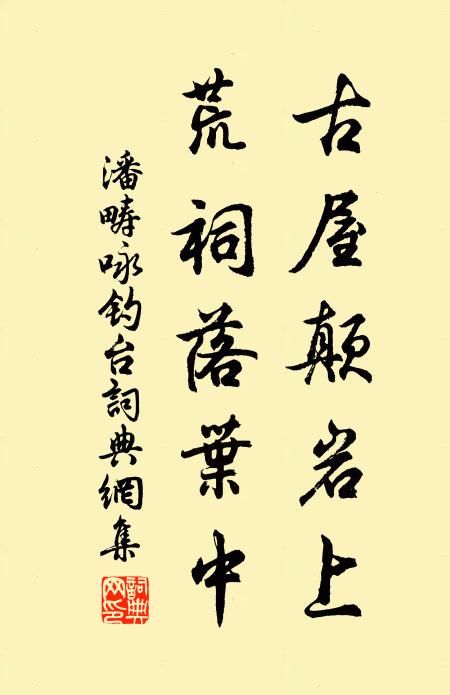 古屋颠岩上
荒祠落葉中
潘畴咏钓台詞典網集
詞典網印